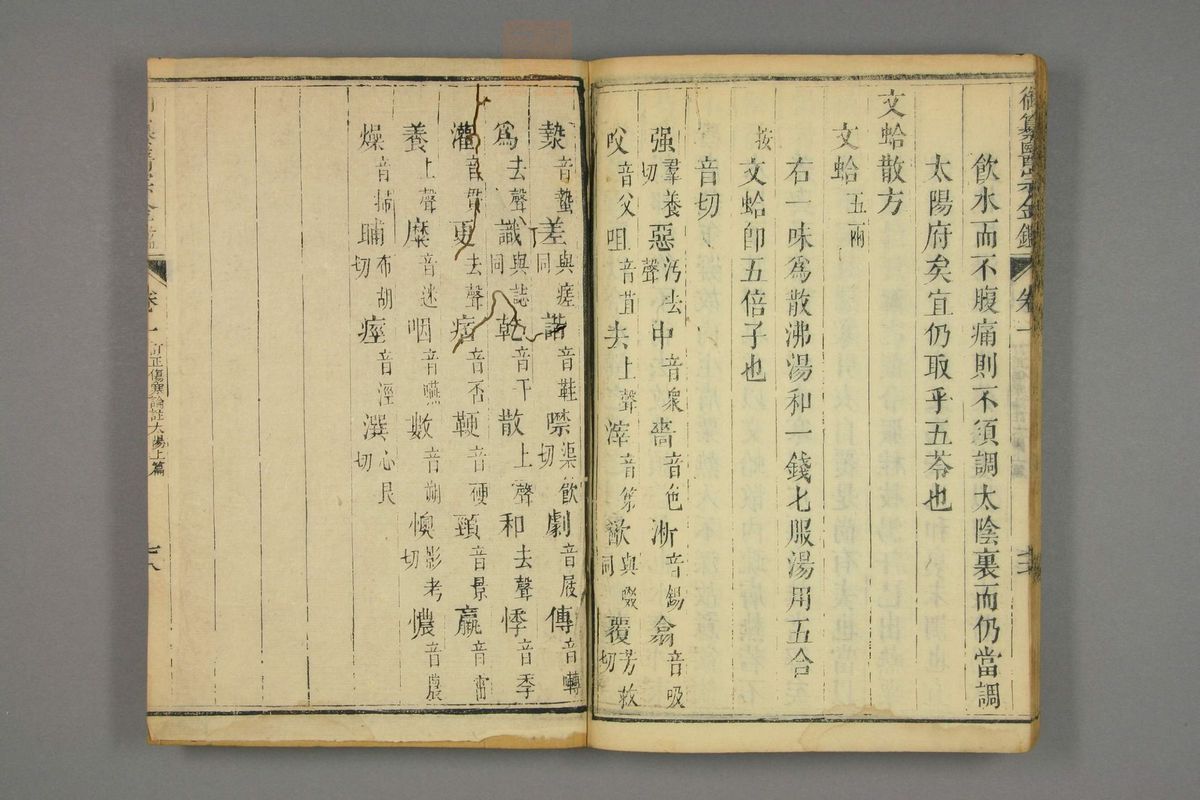 御纂醫宗金鑑 卷一
飲水而不腹痛則不須調太陰裏而仍當調
太陽府矣宜仍取乎五苓也
文蛤散方
文蛤五兩
右一味爲散沸湯和一錢匕服湯用五合
按文蛤卽五倍子也
音切
强羣養切 惡污去聲 中音衆 嗇音色 淅音錫 翕音吸
㕮音父 咀音苴 去上聲 滓音第 歠與啜同 覆芳救切
漐音蟄 差與瘥同 諧音鞋 噤渠飮切 劇音屐 傳音囀
爲去聲 識與誌同 乾音干 散上聲 和去聲 悸音季
灌音貫 更去聲 痞音否 鞕音硬 頸音景 羸音雷
養上聲 糜音迷 咽音嚥 數音朔 懊影考切 憹音農
燥音掃 晡布胡切 痙音涇 潠心艮切
卷一 訂正傷寒論註太陽上篇 七八